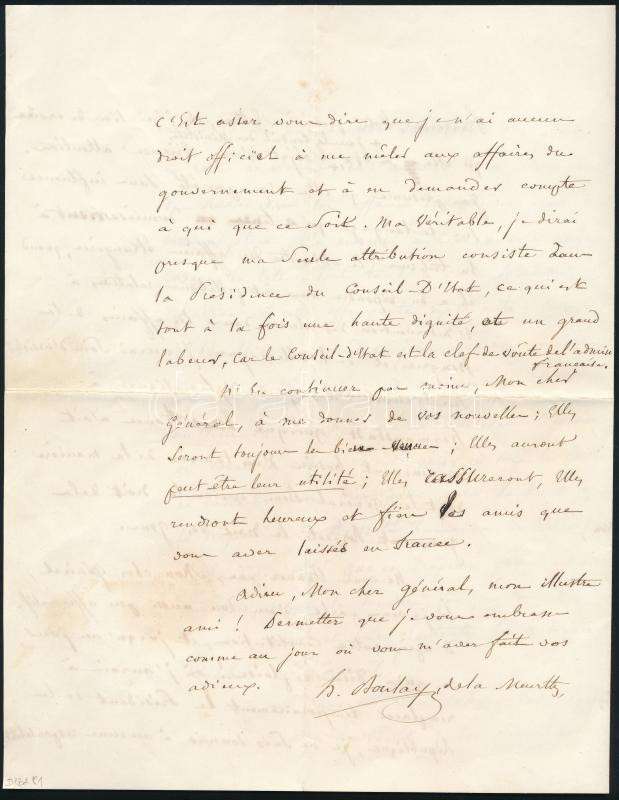 C'Est assez vous dire que je n'ai aucun
droit officiel à me mêler aux affaires du
gouvernement et à en demander compte
à qui que ce soit. Ma véritable, je dirai
presque ma seule attribution consiste dans
la Présidence du Conseil-D'Etat, ce qui est
tout à la fois une haute dignité, et un grand
labeur, car le Conseil-d'Etat est la clef de voûte de l'admin
française.
N'En continuez pas moins, Mon cher
Général, à me donner de vos nouvelles ; Elles
seront toujours les bien venues ; Elles auront
peut être leur utilité ; Elles rassureront, Elles
rendront heureux et fiers les amis que
vous avez laissés en france.
Adieu, Mon cher général, mon illustre
ami ! Permettez que je vous embrasse
comme au jour où vous m'avez fait vos
adieux.
h. Boulay, de la Meurthe,